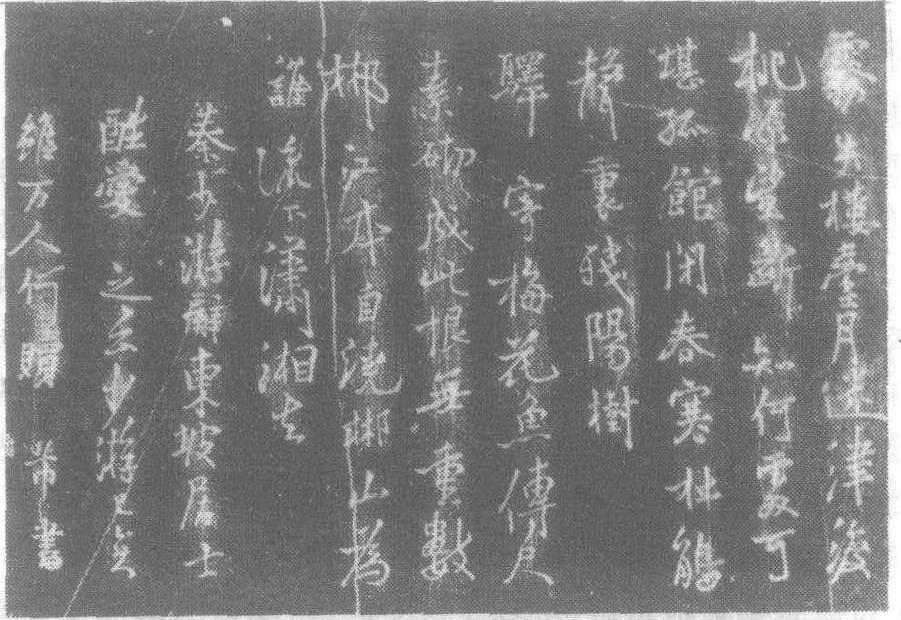 霧失樓臺月迷津渡
桃源望斷知何處可
堪孤館閉春寒杜鵑
聲裏殘陽樹
驛寄梅花魚傳尺
素砌成此恨無重數
郴江本自繞郴山為
誰流下瀟湘去
秦少游辭東坡居士
酷愛之云少游已矣
雖万人何贖 芾書